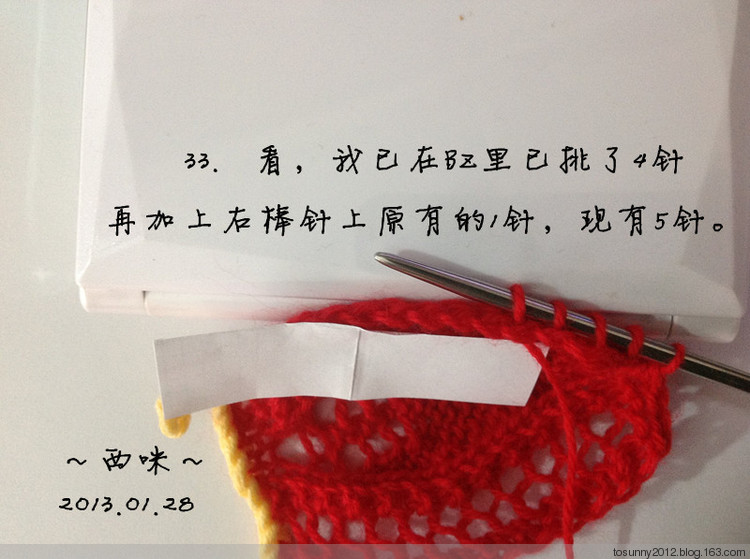 33. 看，我已在BZ里已挑了4针
再加上右棒针上原有的1针，现有5针。
～西咪～
2013.01.28
tosunny2012.blog.163.com